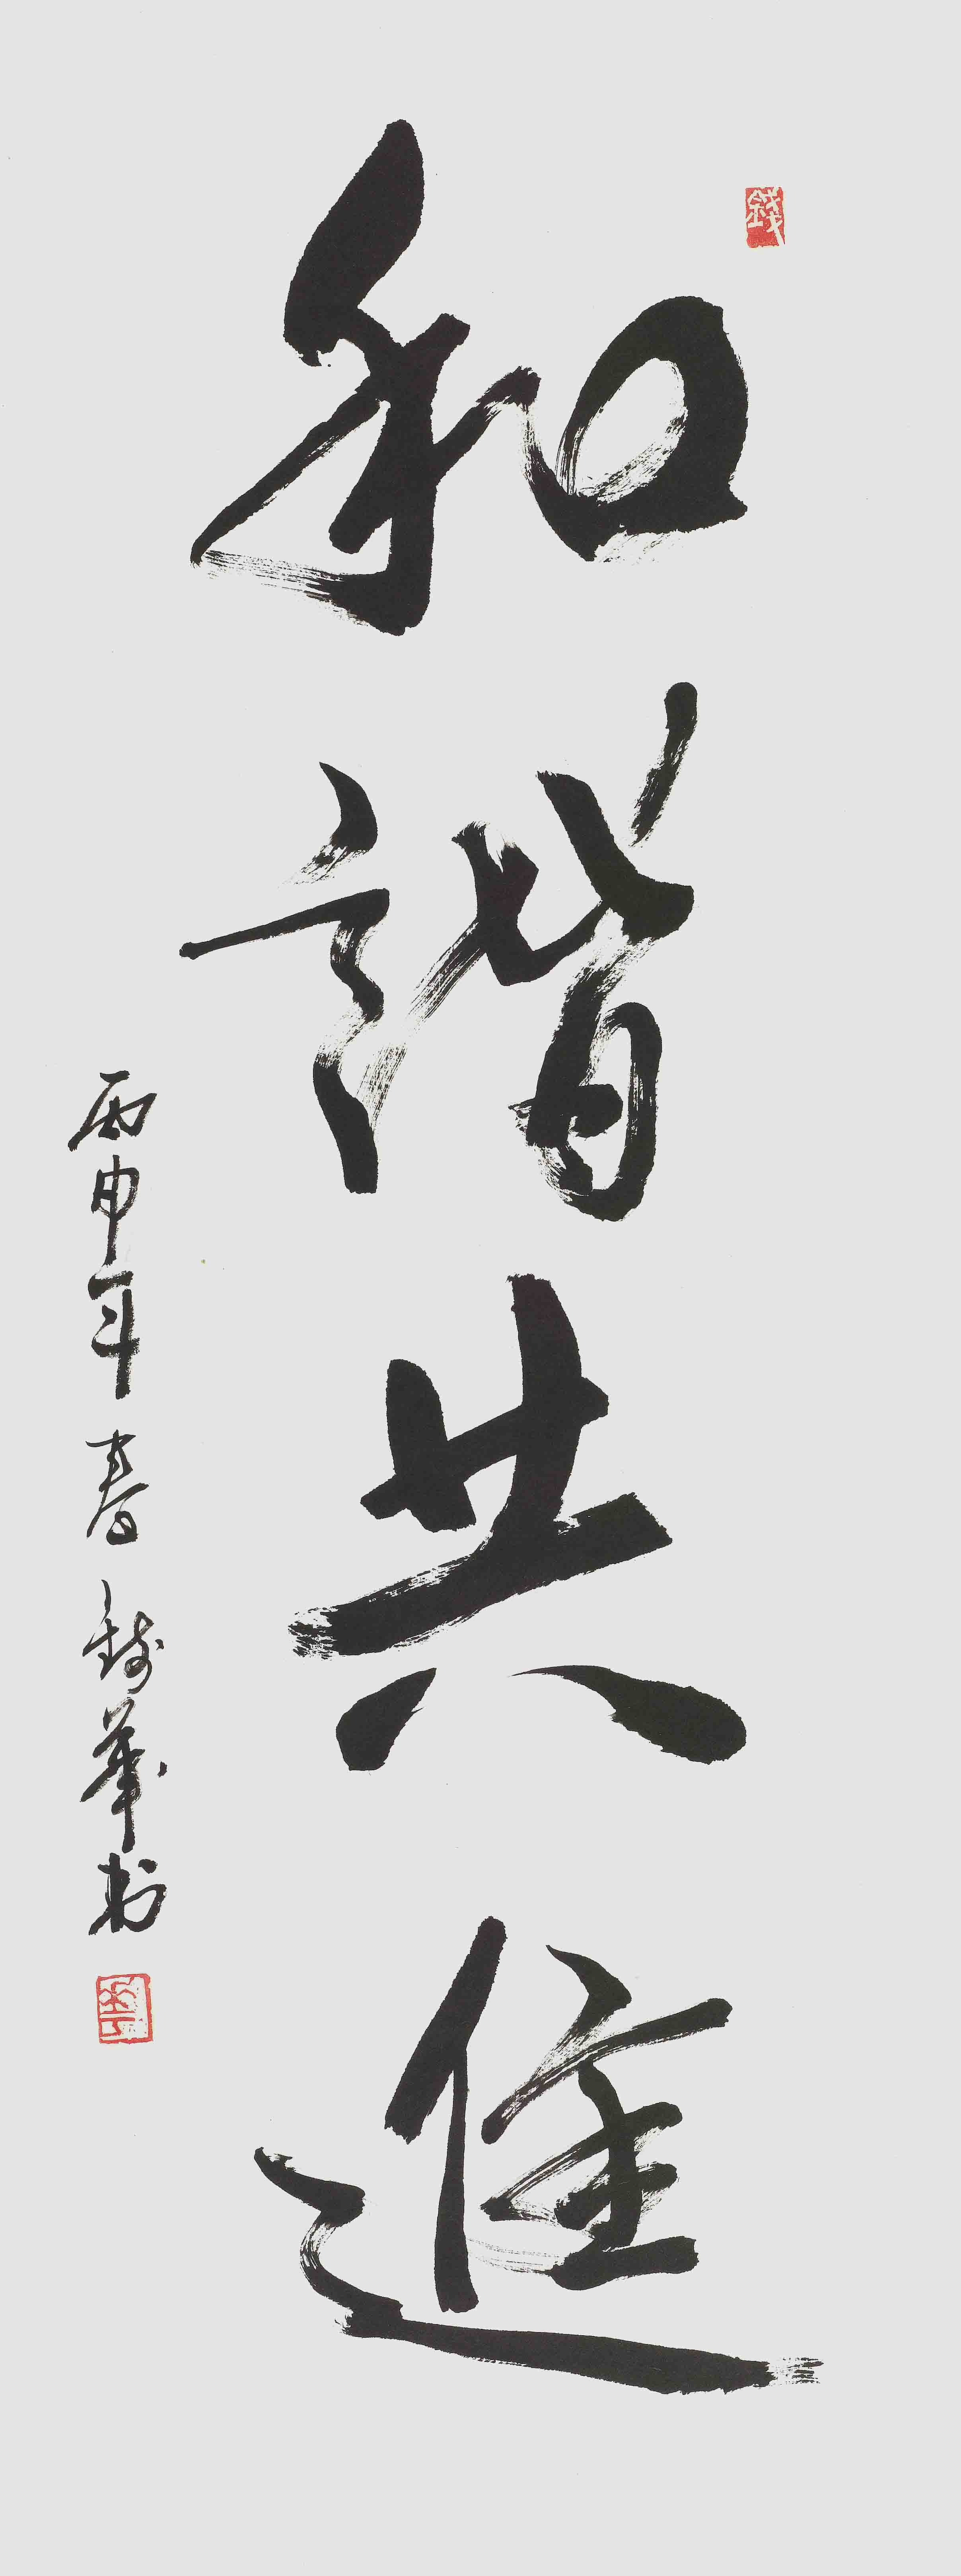 和諧共進
丙申年春 錢華書
錢